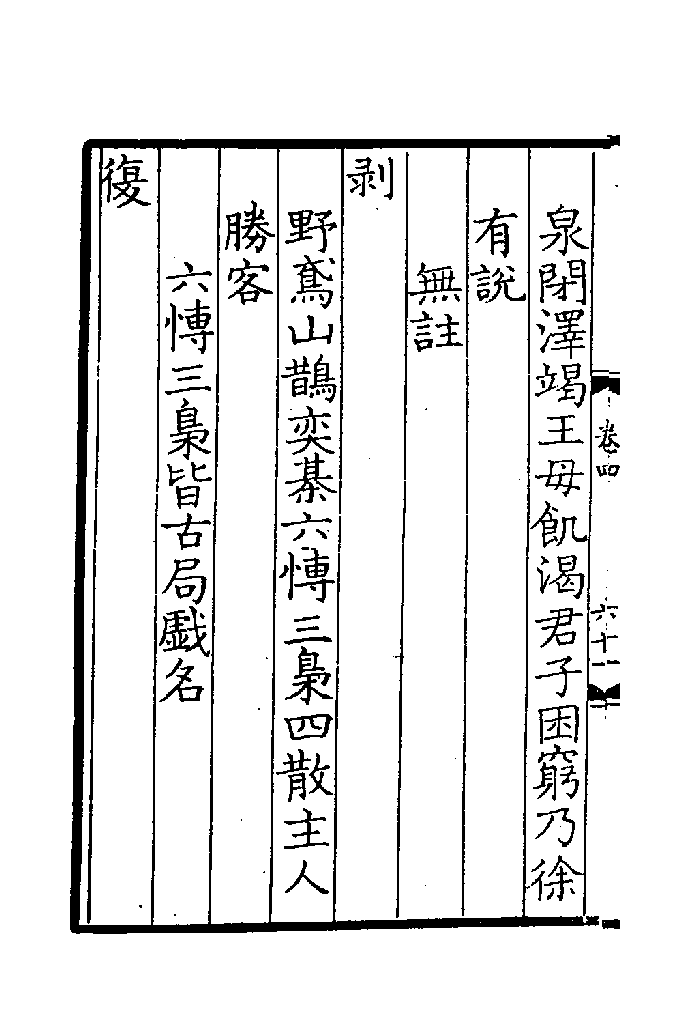 泉閉澤竭王毋飢渴君子困窮乃徐
有說
無註
剥
野鳶山鵲奕棊六慱三梟四散主人
勝客
六慱三梟皆古局戱名
復
卷四
六十一